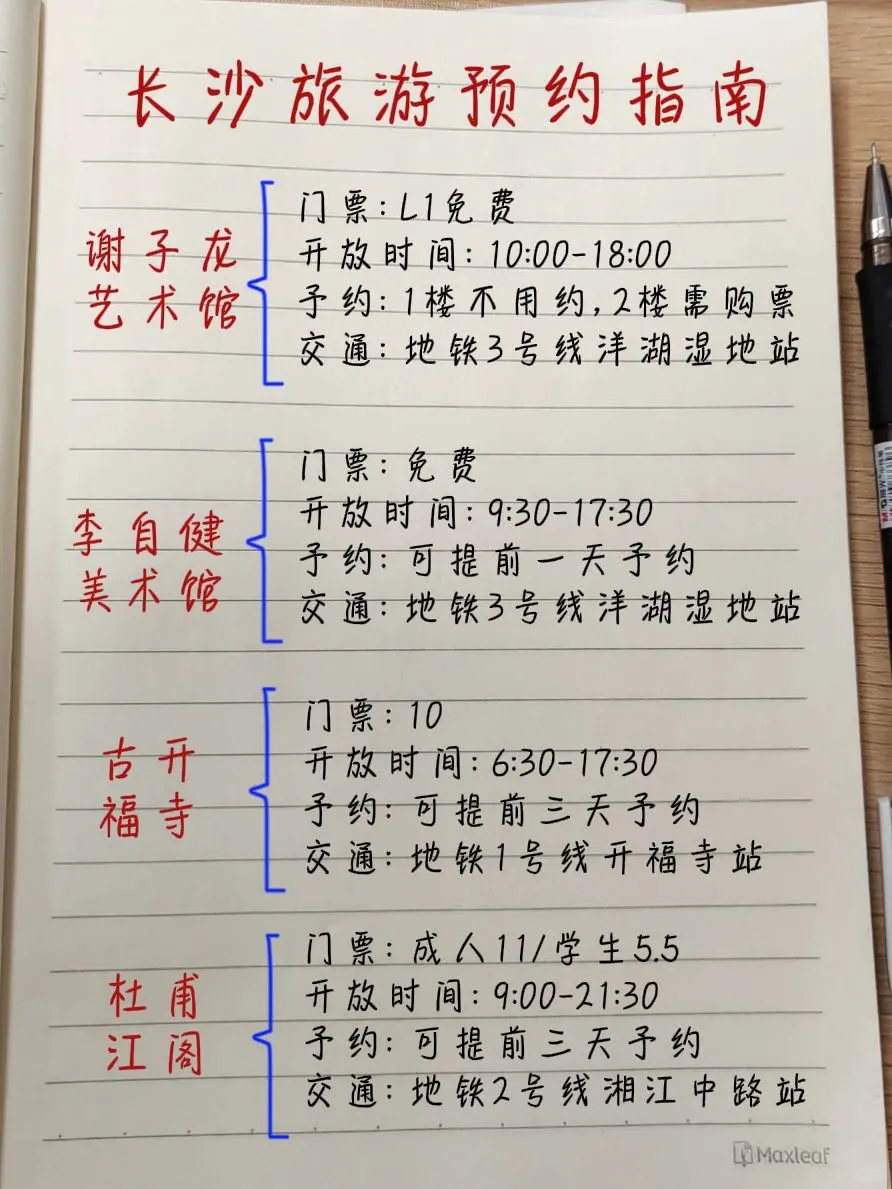 长沙旅游预约指南
谢子龙
艺术馆
门票:L1免费
开放时间:10:00-18:00
予约:1楼不用约,2楼需购票
交通:地铁3号线洋湖湿地站
李自健
美术馆
门票:免费
开放时间:9:30-17:30
予约:可提前一天予约
交通:地铁3号线洋湖湿地站
古开
福寺
门票:10
开放时间:6:30-17:30
予约:可提前三天予约
交通:地铁1号线开福寺站
杜甫
江阁
门票:成人11/学生5.5
开放时间:9:00-21:30
予约:可提前三天予约
交通:地铁2号线湘江中路站
Maxleaf